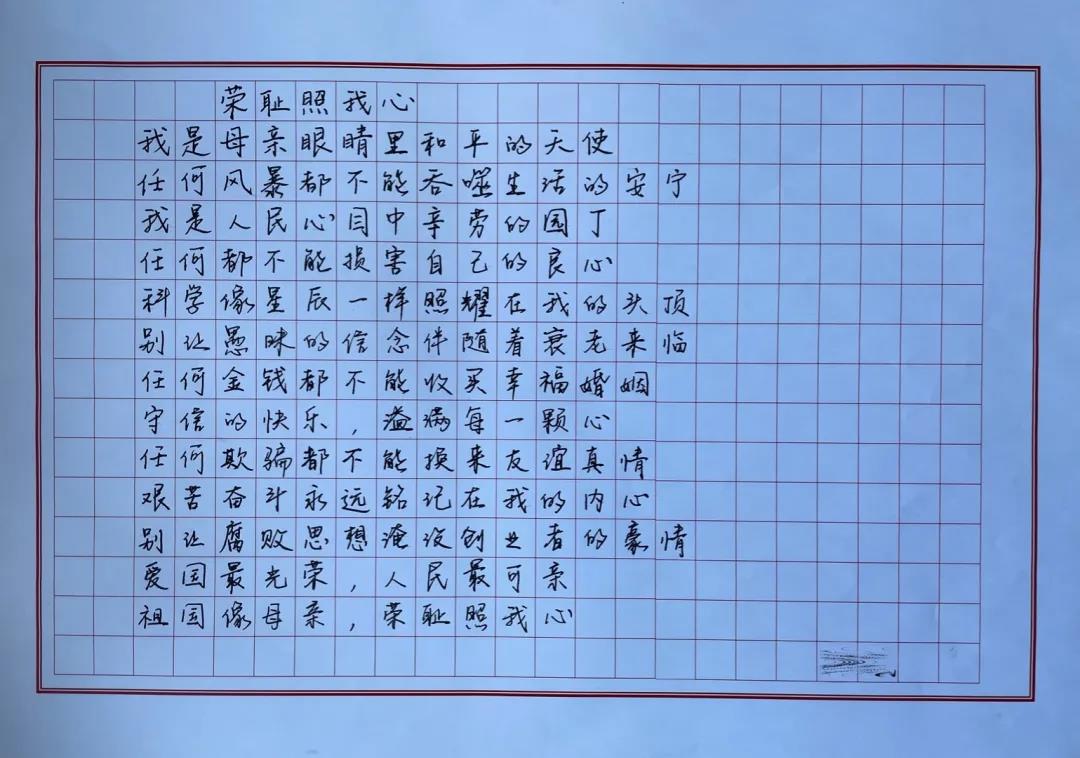 荣耻照我心
我是母亲眼睛里和平的天使
任何风暴都不能吞噬生活的安宁
我是人民心目中辛劳的园丁
任何都不能损害自己的良心
科学像星辰一样照耀在我的头顶
别让愚昧的信念伴随着衰老来临
任何金钱都不能收买幸福婚姻
守信的快乐,溢满每一颗心
任何欺骗都不能换来友谊真情
艰苦奋斗永远铭记在我的内心
别让腐败思想淹没创业者的豪情
爱国最光荣,人民最可亲
祖国像母亲,荣耻照我心